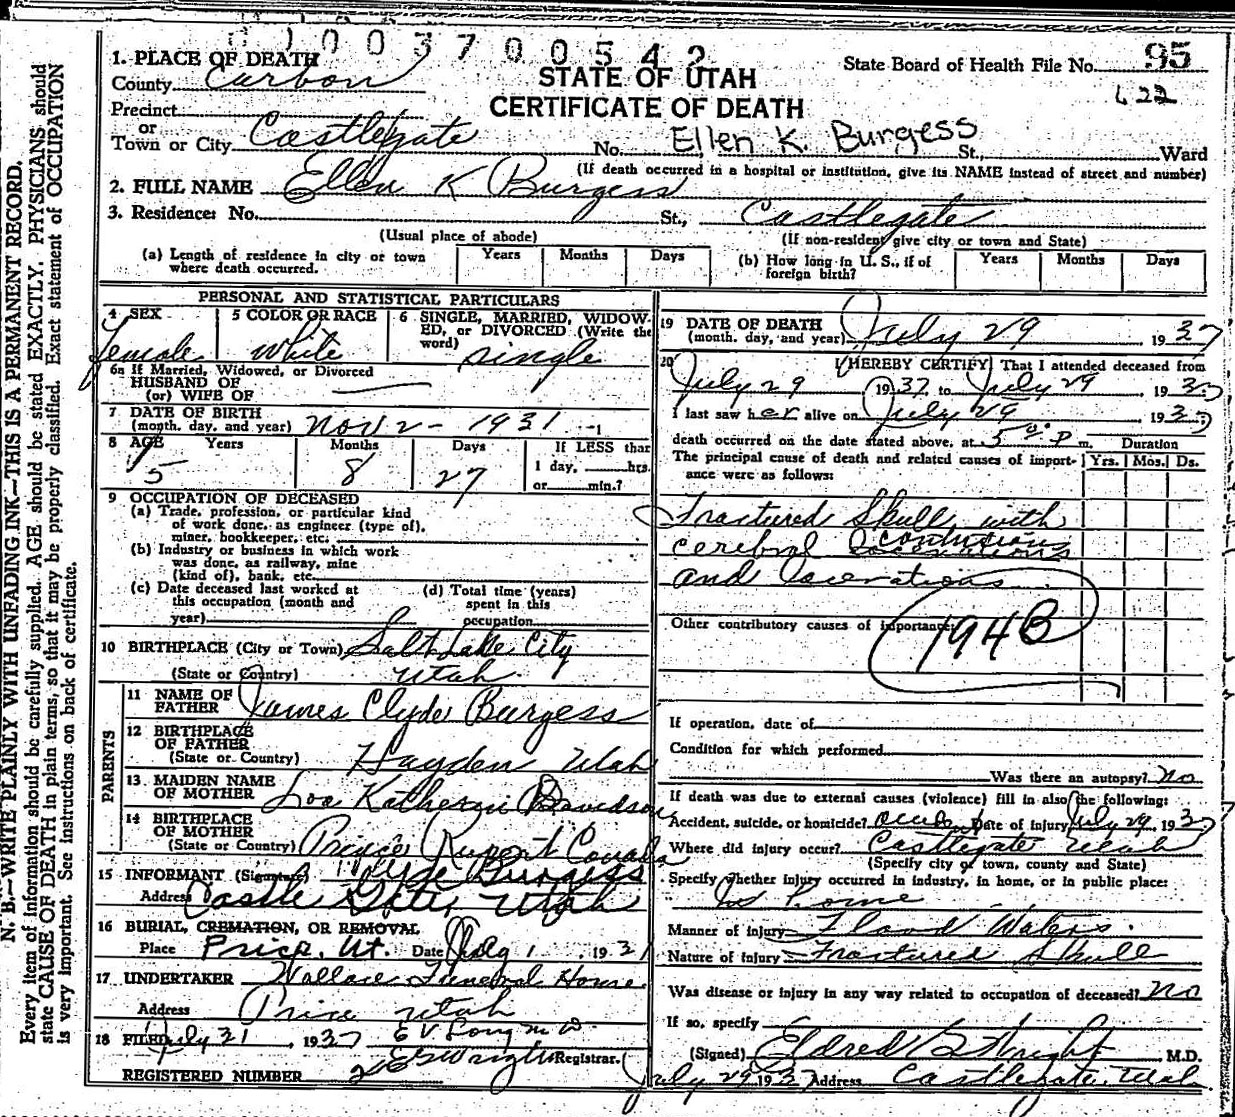 C 1 0 0 3 7 0 0 5 4 2
1. PLACE OF DEATH
County Carbon
Precinct
or
Town or City Castlegate
STATE OF UTAH
CERTIFICATE OF DEATH
State Board of Health File No. 95
622
No. Ellen K. Burgess St., Ward
(If death occurred in a hospital or institution, give its NAME instead of street and number)
2. FULL NAME Ellen K Burgess
3. Residence: No. St., Castlegate
(Usual place of abode) (If non-resident give city or town and State)
(a) Length of residence in city or town where death occurred. Years Months Days
(b) How long in U. S., if of foreign birth? Years Months Days
PERSONAL AND STATISTICAL PARTICULARS
4 SEX 5 COLOR OR RACE 6 SINGLE, MARRIED, WIDOWED, or DIVORCED (Write the word)
female White single
6a If Married, Widowed, or Divorced
HUSBAND OF
(or) WIFE OF
7 DATE OF BIRTH
(month, day, and year) Nov 2 - 1931
8 AGE Years Months Days If LESS than
5 8 27 1 day, hrs.
or min.?
9 OCCUPATION OF DECEASED
(a) Trade, profession, or particular kind
of work done, as engineer (type of),
miner, bookkeeper, etc.
(b) Industry or business in which work
was done, as railway, mine
(kind of), bank, etc.
(c) Date deceased last worked at
this occupation (month and
year)
(d) Total time (years)
spent in this
occupation
10 BIRTHPLACE (City or Town) Salt Lake City
(State or Country) Utah
PARENTS
11 NAME OF
FATHER James Clyde Burgess
12 BIRTHPLACE
OF FATHER
(State or Country) Hayden Utah
13 MAIDEN NAME
OF MOTHER Loa Katherine Davidson
14 BIRTHPLACE
OF MOTHER
(State or Country) Prince Rupert Canada
15 INFORMANT (Signature) Clyde Burgess
Address Castle Gate, Utah
16 BURIAL, CREMATION, OR REMOVAL
Place Price, Ut. Date Aug 1, 193
17 UNDERTAKER Wallace Funeral Home
Address Price Utah
18 FILED July 31, 1937 E V Long M D
E G Wright Registrar.
REGISTERED NUMBER 2
19 DATE OF DEATH
(month, day, and year) July 29 1937
20 I HEREBY CERTIFY That I attended deceased from
July 29 1937, to July 29 1937
I last saw her alive on July 29 1937
death occurred on the date stated above, at 5 P m. Duration
The principal cause of death and related causes of importance were as follows: Yrs. Mos. Ds.
Fractured Skull with
contusions
cerebral lacerations
and lacerations
Other contributory causes of importance:
194B
If operation, date of
Condition for which performed
Was there an autopsy? no
If death was due to external causes (violence) fill in also the following:
Accident, suicide, or homicide? accident Date of injury July 29, 1937
Where did injury occur? Castlegate Utah
(Specify city or town, county and State)
Specify whether injury occurred in industry, in home, or in public place:
home
Manner of injury Flood Waters.
Nature of injury Fractured Skull
Was disease or injury in any way related to occupation of deceased? no
If so, specify
(Signed) Eldred G Wright M.D.
July 29 1937 Address Castlegate, Utah
N. B.—WRITE PLAINLY WITH UNFADING INK—THIS IS A PERMANENT RECORD.
Every item of information should be carefully supplied. AGE should be stated EXACTLY. PHYSICIANS should
state CAUSE OF DEATH in plain terms, so that it may be properly classified. Exact statement of OCCUPATION
is very important. See instructions on back of certificate.